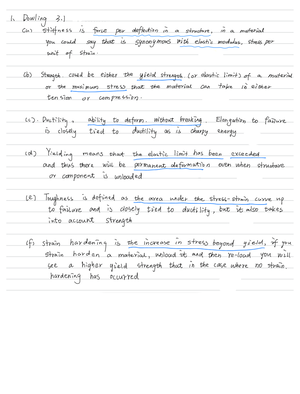 1. Dowling 3.1
(a) Stiffness is force per deflection in a structure, in a material
you could say that is synonymous with elastic modulus, stress per
unit of strain
(b) Strength could be either the yield strength (or elastic limit) of a material
or the maximum stress that the material can take in either
tension or compression.
(c) Ductility = ability to deform without breaking. Elongation to failure
is closely tied to ductility as is charpy energy
(d) Yielding means that the elastic limit has been exceeded
and thus there will be permanent deformation even when structure
or component is unloaded
(e) Toughness is defined as the area under the stress-strain curve up
to failure and is closely tied to ductility, but it also takes
into account strength
(f) Strain hardening is the increase in stress beyond yield, if you
strain harden a material, unload it and then re-load you will
see a higher yield strength that in the case where no strain
hardening has ocurred